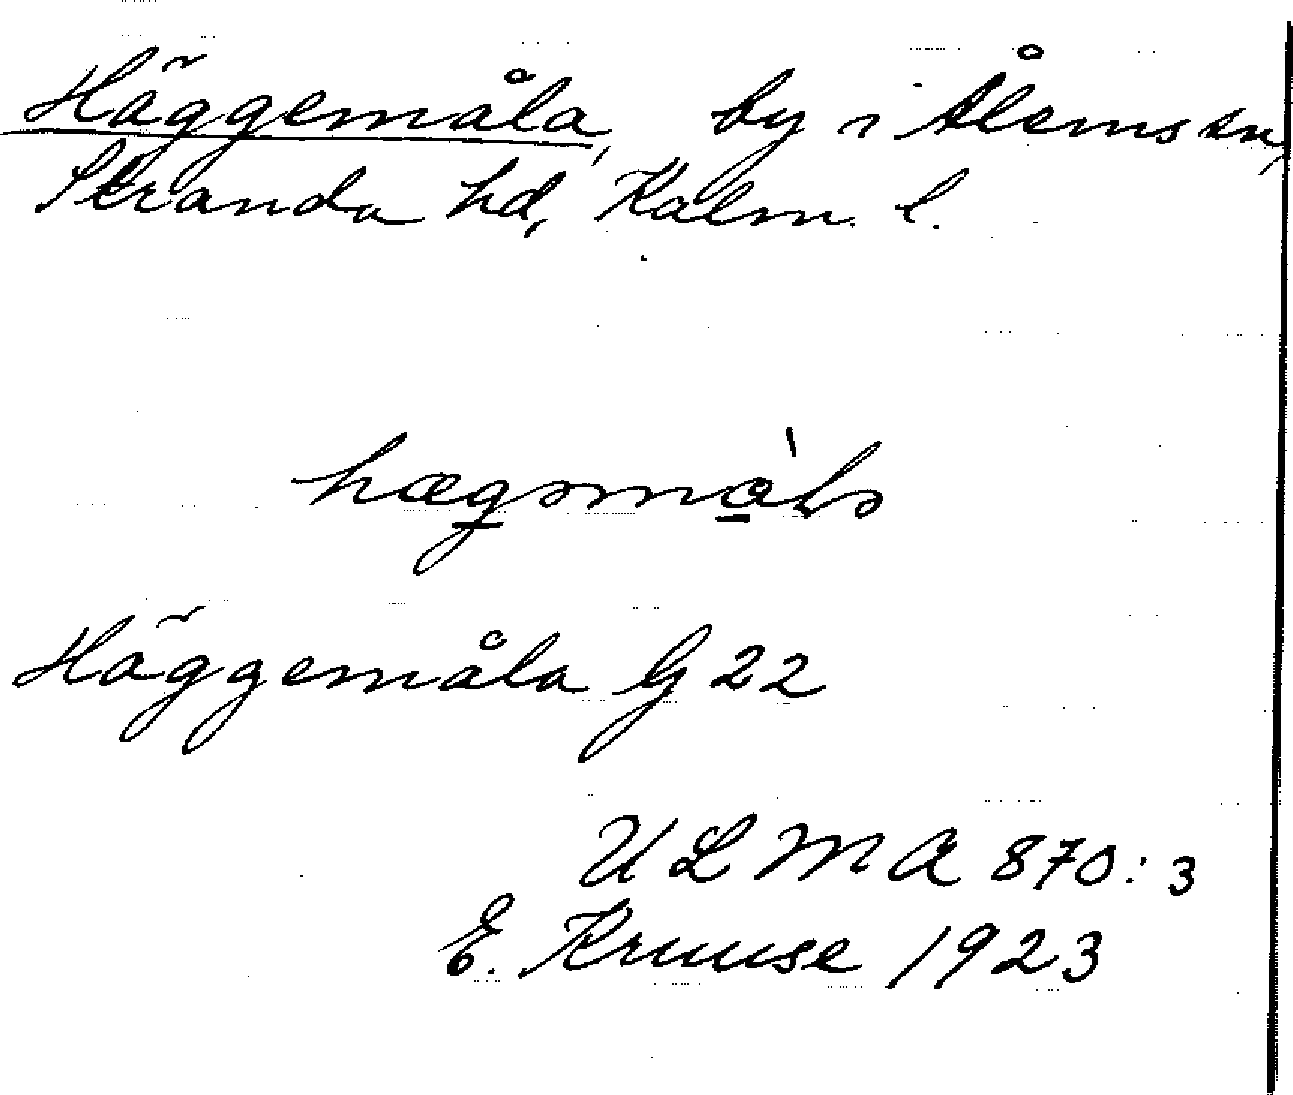 Häggemåla, by i Ålems sn,
Stranda hd, Kalm. l.
Häggemåla G 22
ULMA 870:3
E. Kruuse 1923